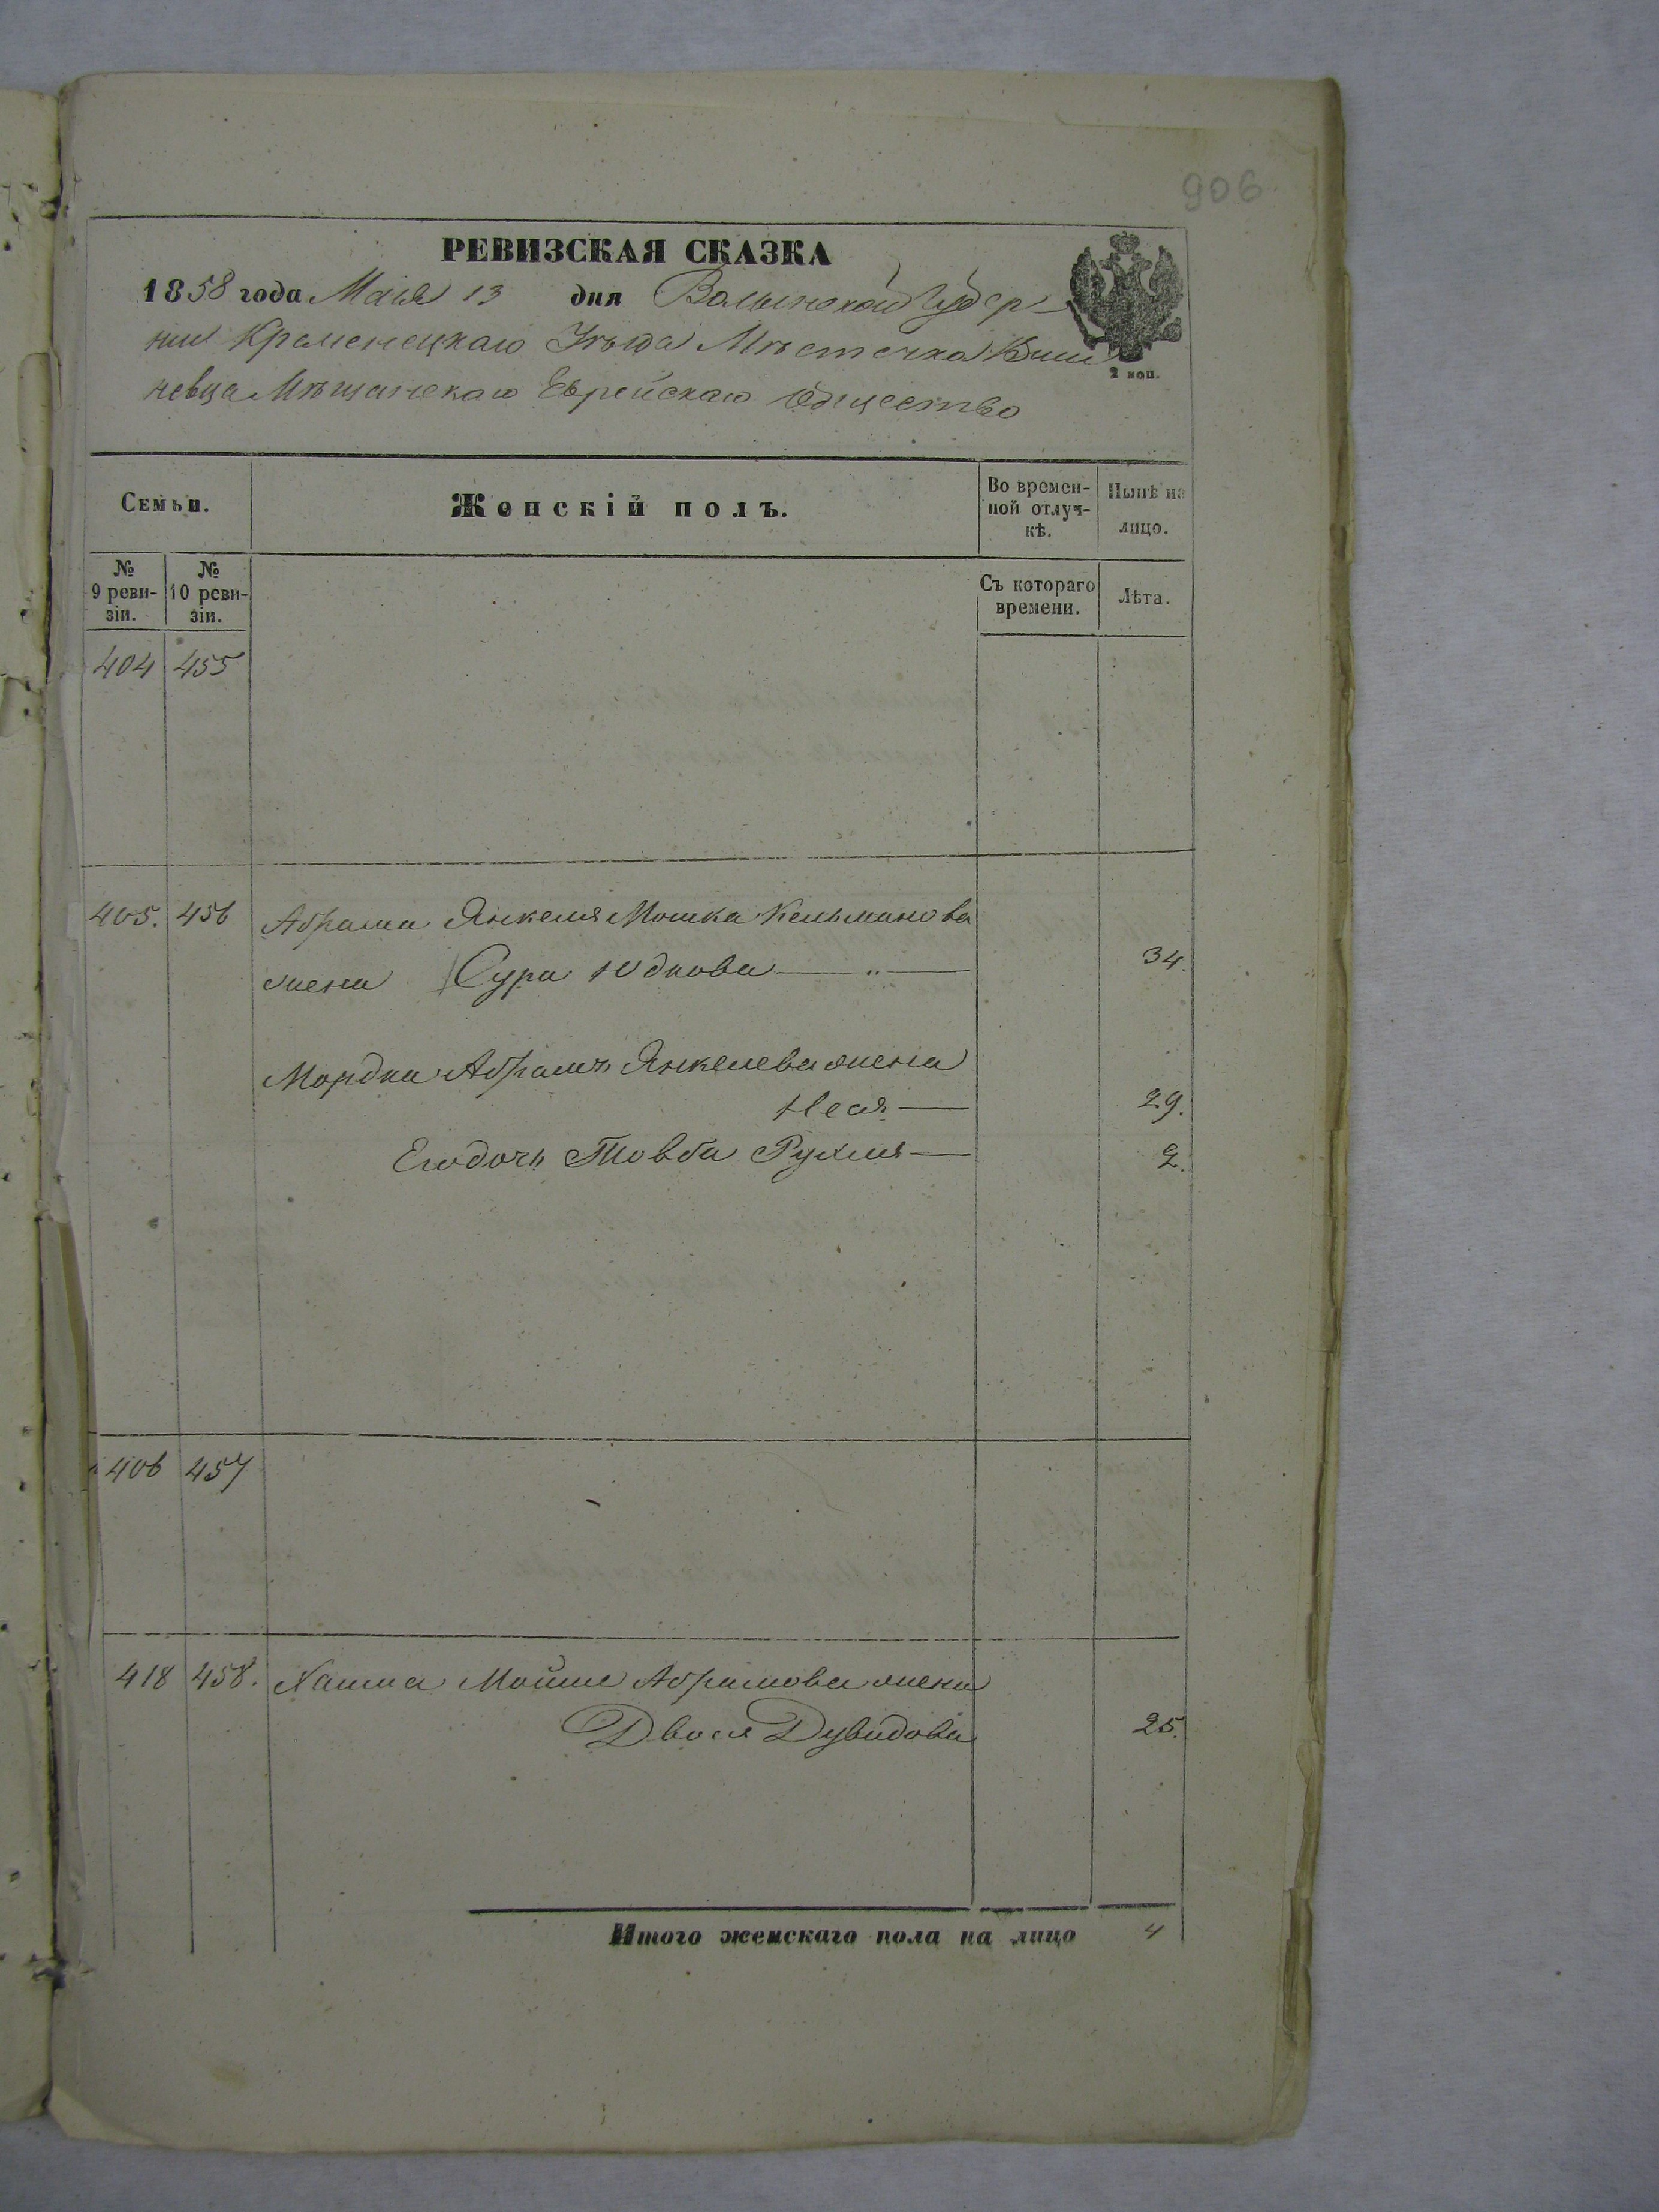 906
РЕВИЗСКАЯ СКАЗКА
1858 года Маія 13 дня Волынской Губер-
нии Кременецкаго Уѣзда Мѣстечка Виш
невца Мѣщанскаго Еврейскаго Общество
2 коп.
Семьи.
Женскій полъ.
Во времен-
ной отлуч-
кѣ.
Нынѣ на
лицо.
№
9 реви-
зіи.
№
10 реви-
зіи.
Съ котораго
времени.
Лѣта.
404 455
405. 456 Абрама Янкеля Мошка Кельманова
жена Сура Юдкова 34.
Мордка Абрамъ Янкелева жена
Неся 29.
Его дочь Товба Рухля 2.
406 457
418 458. Хаима Мойше Абрамова жена
Двося Дувидова 25.
Итого женскаго пола на лицо 4